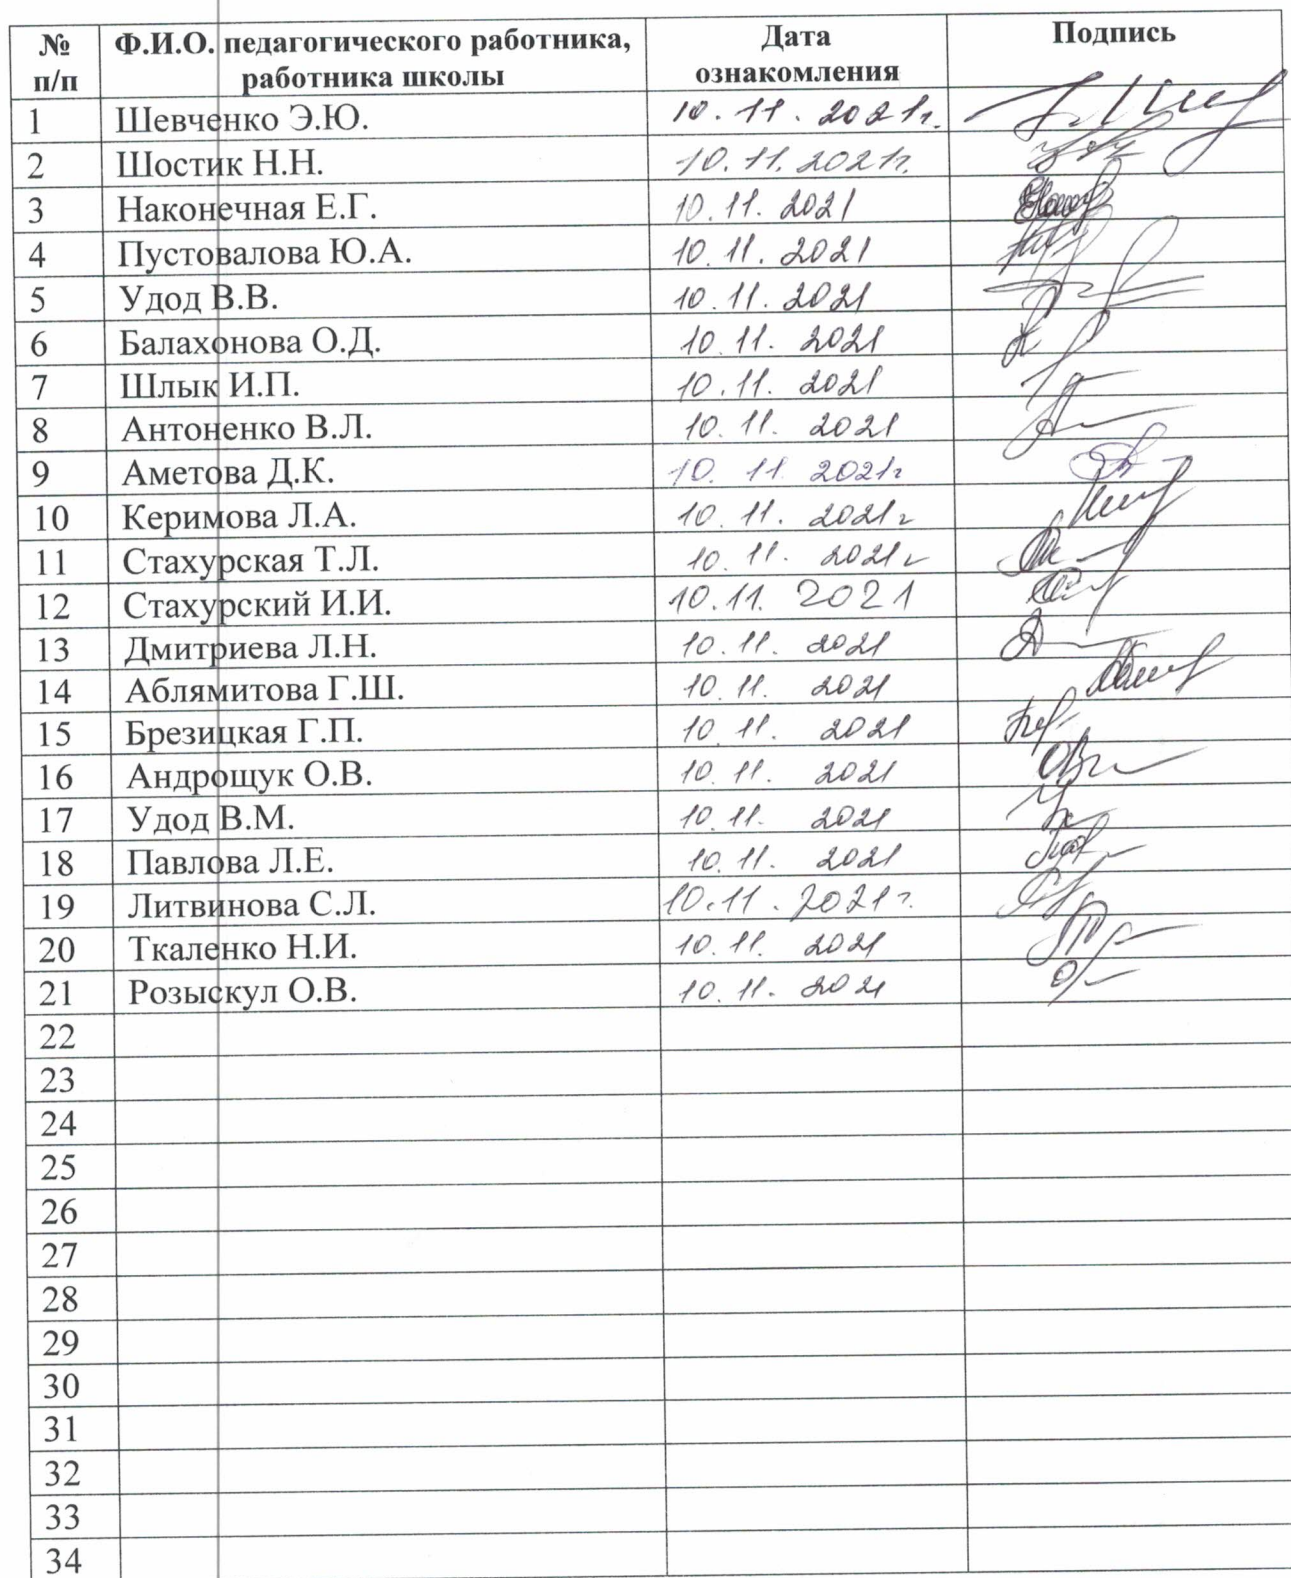 № п/п Ф.И.О. педагогического работника, работника школы Дата ознакомления Подпись
1 Шевченко Э.Ю. 10.11.2021г.
2 Шостик Н.Н. 10.11.2021г.
3 Наконечная Е.Г. 10.11.2021
4 Пустовалова Ю.А. 10.11.2021
5 Удод В.В. 10.11.2021
6 Балахонова О.Д. 10.11.2021
7 Шлык И.П. 10.11.2021
8 Антоненко В.Л. 10.11.2021
9 Аметова Д.К. 10.11 2021г
10 Керимова Л.А. 10.11.2021г
11 Стахурская Т.Л. 10.11.2021г
12 Стахурский И.И. 10.11.2021
13 Дмитриева Л.Н. 10.11.2021
14 Аблямитова Г.Ш. 10.11.2021
15 Брезицкая Г.П. 10.11.2021
16 Андрощук О.В. 10.11.2021
17 Удод В.М. 10.11.2021
18 Павлова Л.Е. 10.11.2021
19 Литвинова С.Л. 10.11.2021г.
20 Ткаленко Н.И. 10.11.2021
21 Розыскул О.В. 10.11.2021
22
23
24
25
26
27
28
29
30
31
32
33
34